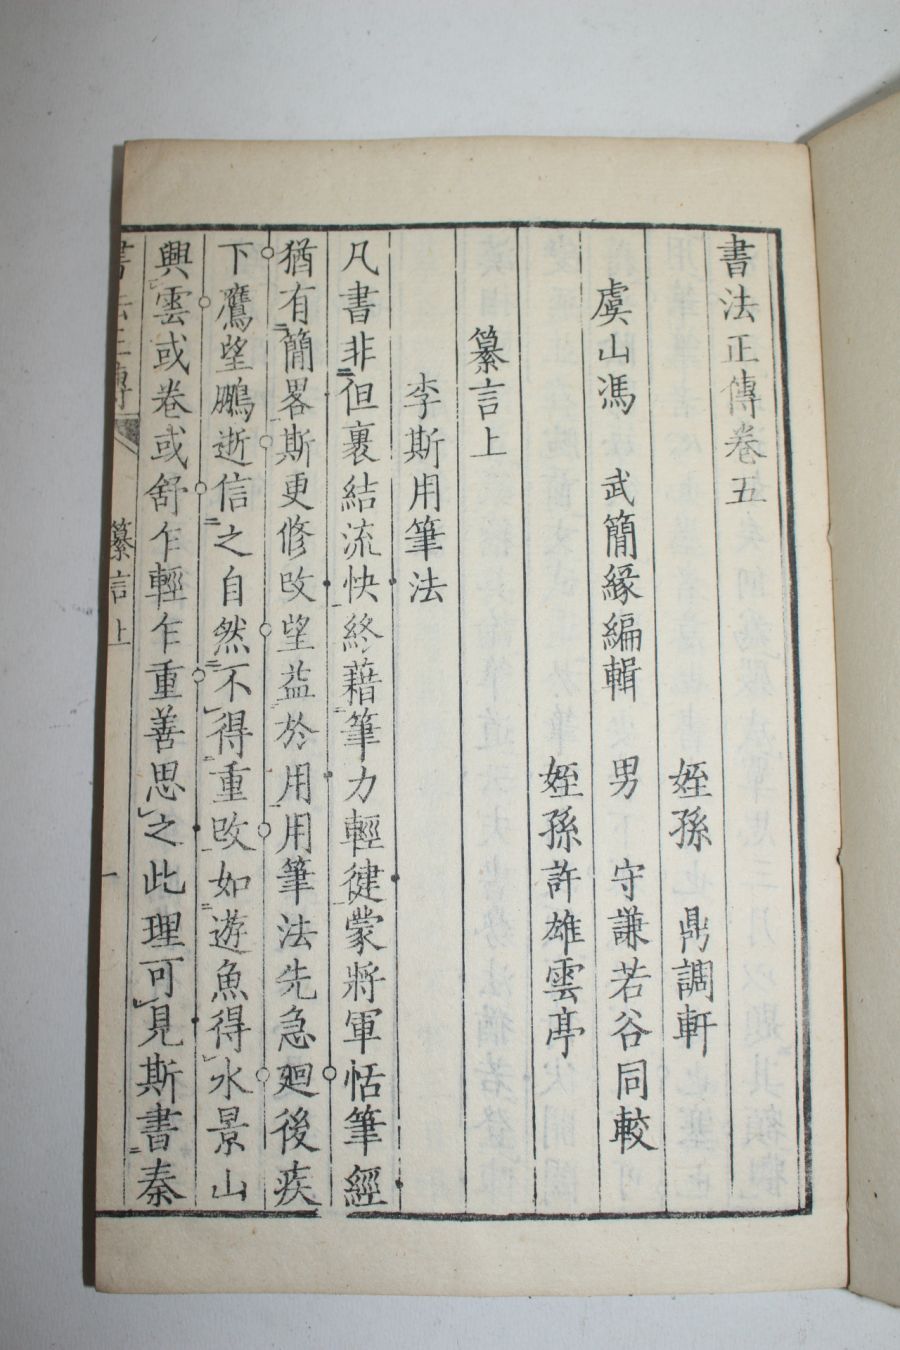 書法正傳卷五
姪孫 鼎調軒
虞山馮 武簡緣編輯 男 守謙若谷同較
姪孫許雄雲亭
纂言上
李斯用筆法
凡書非但裹結流快終藉筆力輕健蒙將軍恬筆經
猶有簡畧斯更修改望益於用用筆法先急廻後疾
下鷹望鵬逝信之自然不得重改如遊魚得水景山
興雲或卷或舒乍輕乍重善思之此理可見斯書秦
書法正傳 纂言上 一